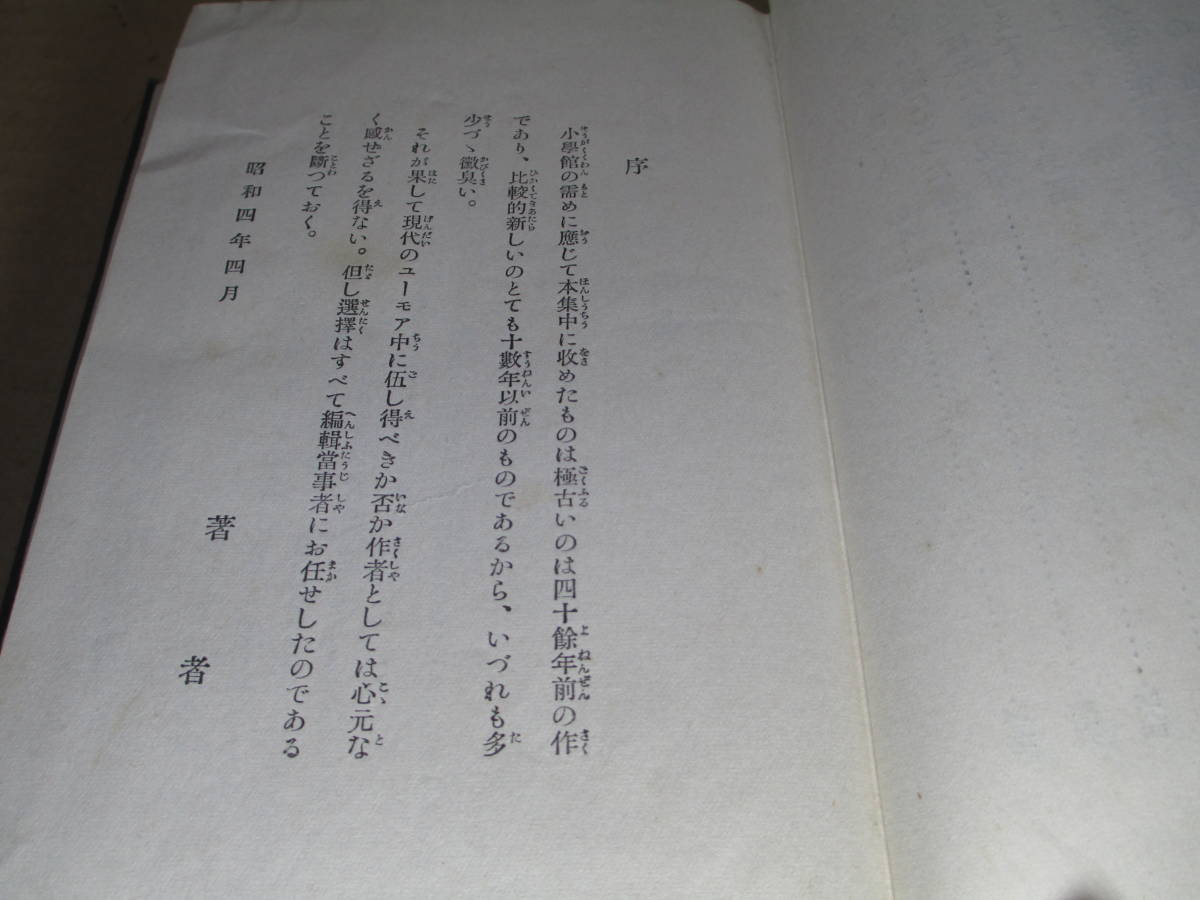 序
小學館の需めに應じて本集中に收めたものは極古いのは四十餘年前の作
であり、比較的新しいのとても十數年以前のものであるから、いづれも多
少づゝ黴臭い。
それが果して現代のユーモア中に伍し得べきか否か作者としては心元な
く感ぜざるを得ない。但し選擇はすべて編輯當事者にお任せしたのである
ことを斷つておく。
昭和四年四月
著者